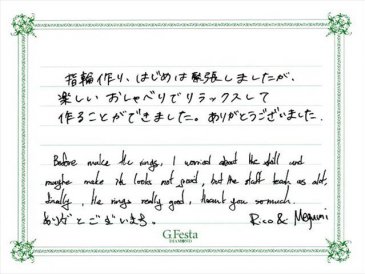 指輪作り、はじめは緊張しましたが、
楽しいおしゃべりでリラックスして
作ることができました。ありがとうございました。
Before make the rings, I worried about the skill and
maybe make it looks not good, but the staff teach as alot,
finally, the rings really good, thank you so much.
ありがとございます。 Rico & Megumi
G.Festa
DIAMOND